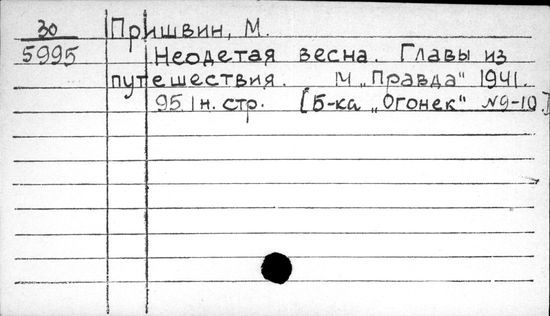 30 Пришвин, М.
5995 Неодетая весна. Главы из
путешествия. М „Правда“ 1941.
95 1н. стр. [Б-ка „Огонек“ №9-10.]